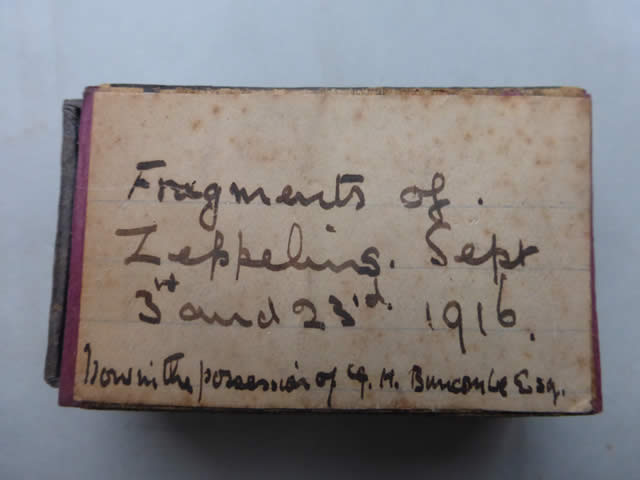 Fragments of.
Zeppelins. Sept
3rd and 23rd. 1916.
Now in the possession of H. Buncombe Esq.